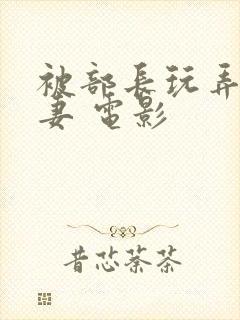 被部長玩弄
妻 電影
昔恋荼茶